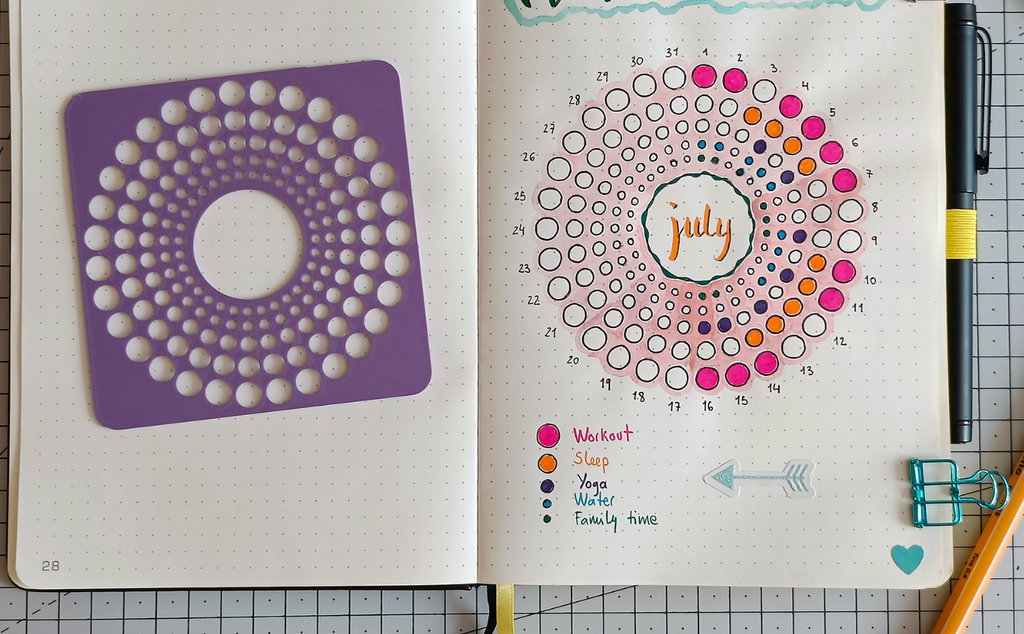 31 1 2 3 4 5 6 7 8 9 10 11 12 13 14 15 16 17 18 19 20 21 22 23 24 25 26 27 28 29 30
july
Workout
Sleep
Yoga
Water
Family time
28